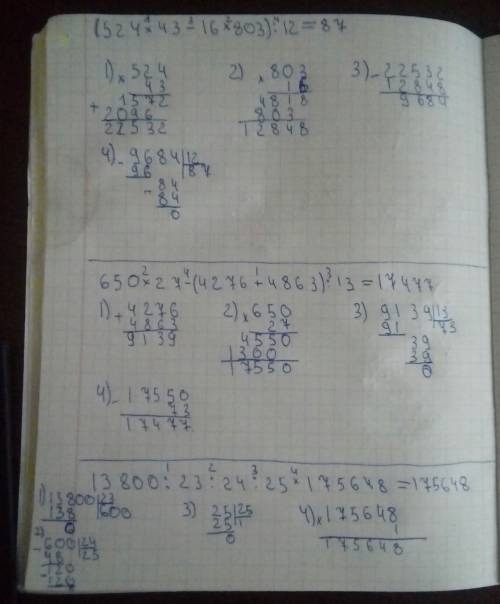 (524 × 43 - 16 × 803) : 12 = 87
1) × 524
43
+ 1572
2096
22532
2) × 803
16
4818
803
12848
3) - 22532
12848
9684
4) - 9684 | 12
96 | 87
- 84
84
0
650 × 27 - (4276 + 4863) : 13 = 17477
1) + 4276
4863
9139
2) × 650
27
4550
1300
17550
3) 9139 | 13
91 | 73
39
39
0
4) - 17550
73
17477
13800 : 23 : 24 : 25 × 175648 = 175648
1) 13800 | 23
138 | 600
0
2) - 600 | 24
48 | 25
- 120
120
3) 25 | 25
25 | 1
0
4) × 175648
1
175648